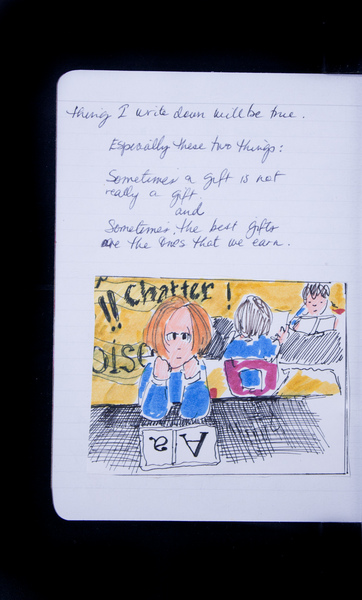 thing I write down will be true.
Especially these two things:
Sometimes a gift is not
really a gift.
and
Sometimes the best gifts
are the ones that we earn.
!! Chatter!
OISE
A a